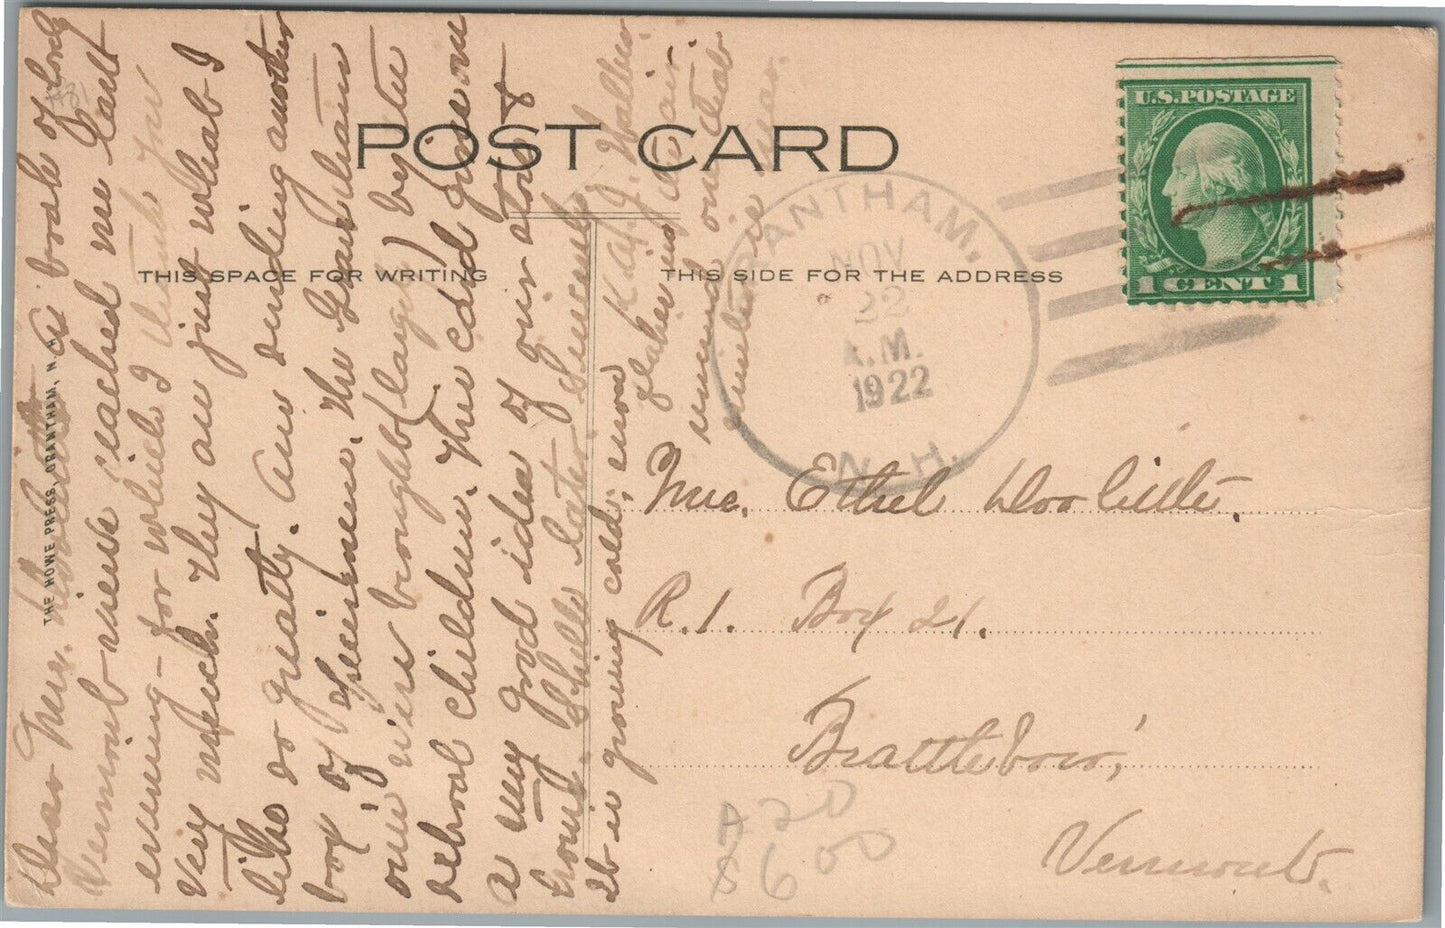 POST CARD
THIS SPACE FOR WRITING
THIS SIDE FOR THE ADDRESS
THE HOWE PRESS, GRANTHAM, N. H.
U.S. POSTAGE
1 CENT 1
GRANTHAM.
NOV
22
A.M.
1922
N. H.
Dear Mrs. Doolittle: A book of lovely
Vermont views reached me last
evening - for which I thank you
very much. They are just what I
like so greatly. Am sending another
box of specimens. The
ones were brought (large) by the
school children. The card gives one
a very good idea of our store &
home. Still later. Sincerely
It is growing cold, snow
flakes in the air
and
Mrs. Ethel Doolittle.
R. 1. Box 21.
Brattleboro,
Vermont.
A 20
S 600